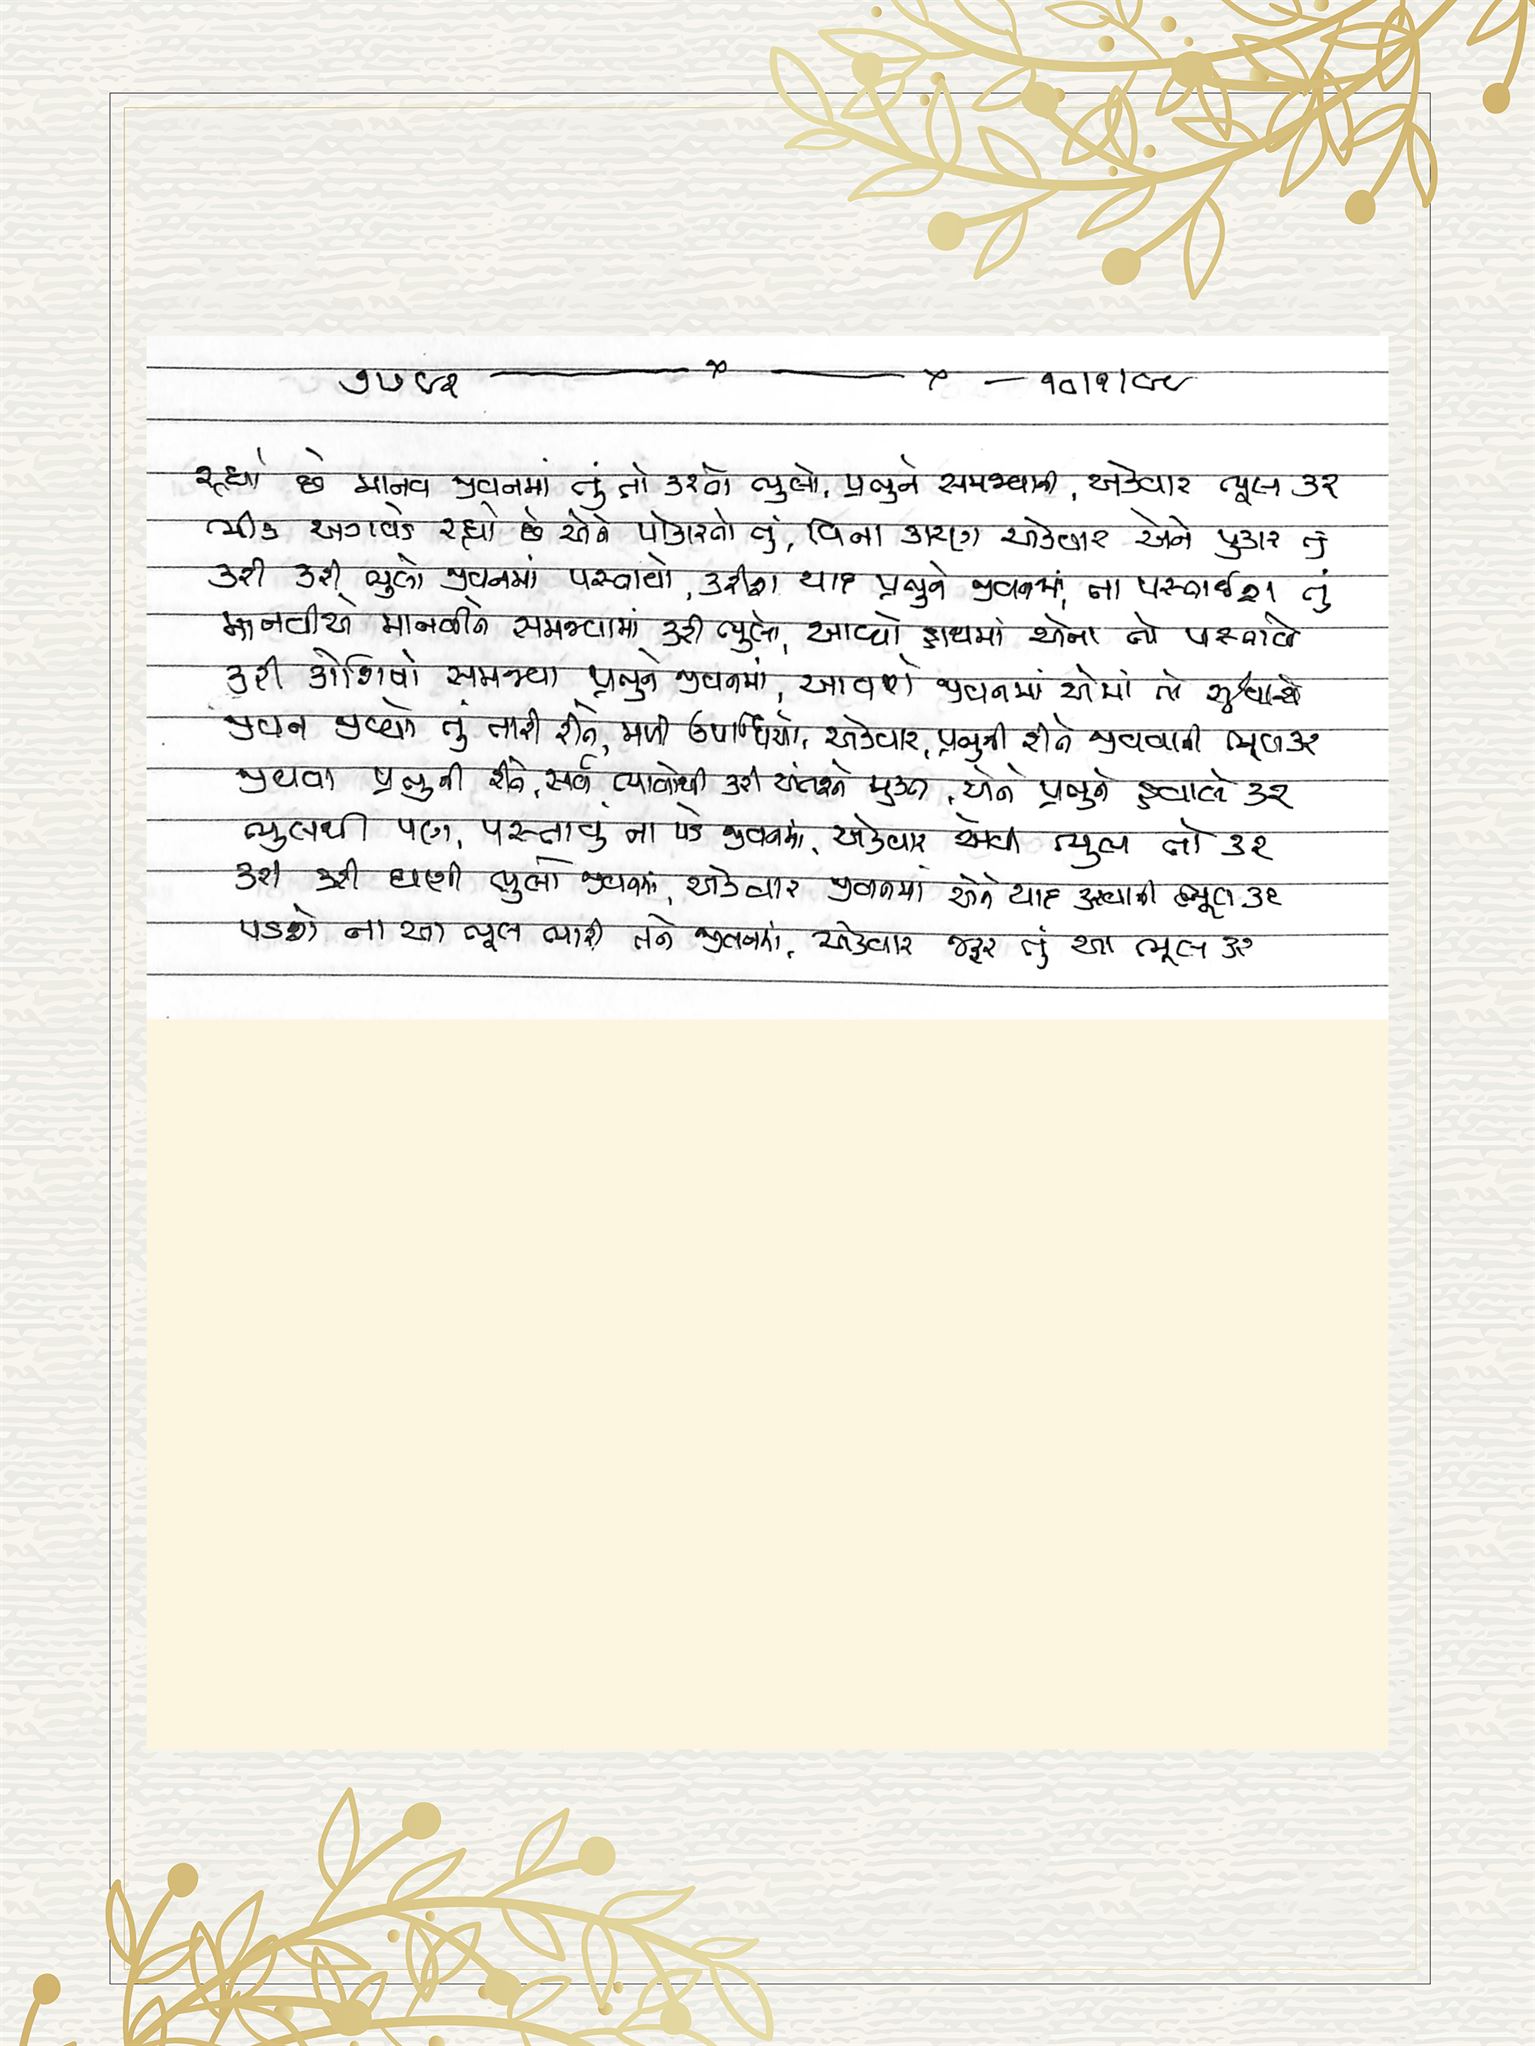 ૭૫૯૨ — × — × — ૧૦/૧/૯૯
રહ્યો છે માનવ જીવનમાં તું તો કરતો ભૂલો, પ્રભુને સમજવાની, એકવાર ભૂલ કર
ભીડ અગવડે રહ્યો છે એને પોકારતો તું, વિના કારણ એકવાર એને પુકાર તું
કરી કરી ભુલો જીવનમાં પસ્તાયો, કરીશ યાદ પ્રભુને જીવનમાં, ના પસ્તાઈશ તું
માનવીએ માનવીને સમજવામાં કરી ભુલો, આવ્યો હાથમાં એના તો પસ્તાવો
કરી કોશિશો સમજવા પ્રભુને જીવનમાં, આવશે જીવનમાં એમાં તો
જીવન જીવ્યો તું તારી રીતે, મળી ઉપાધિયો, એકવાર, પ્રભુની રીતે જીવવાની ભૂલ કર
જીવવા પ્રભુની રીતે, સર્વ ભાવોથી કરી અંતરને મુક્ત, એને પ્રભુને હવાલે કર
ભુલથી પણ, પસ્તાવું ના પડે જીવનમાં, એકવાર એવી ભુલ તો કર
કરી કરી ઘણી ભુલો જીવનમાં, એકવાર જીવનમાં એને યાદ કરવાની ભૂલ કર
પડશે ના આ ભૂલ ભારી તને જીવનમાં, એકવાર જરૂર તું આ ભૂલ કર